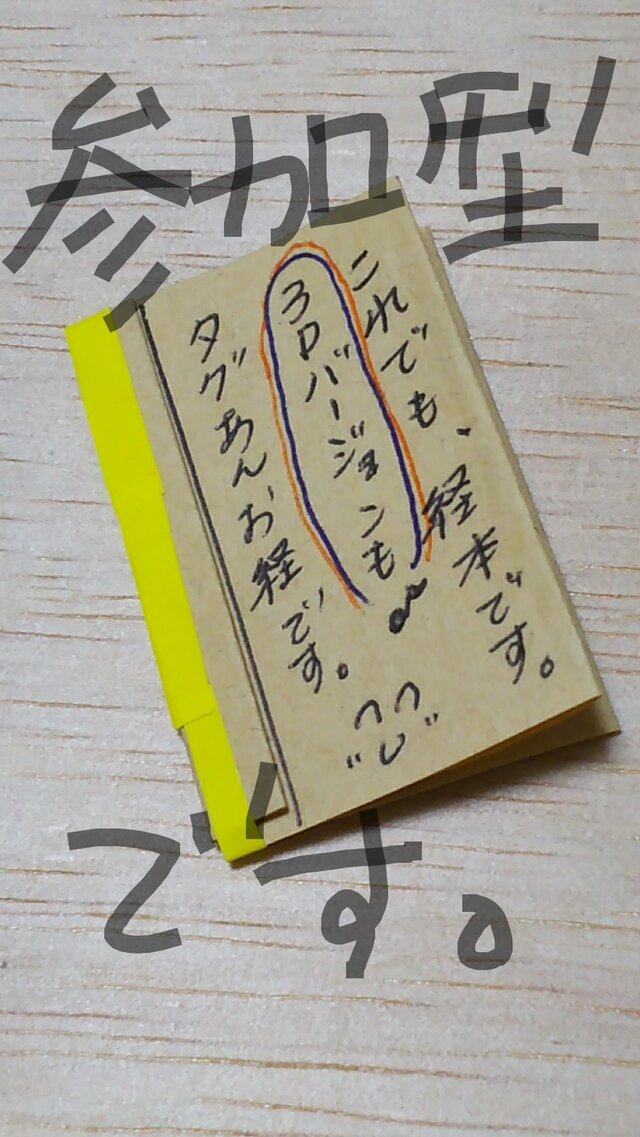 参加型
これでも、経本です。
3Dバージョンも
タグあんお経です。
です。